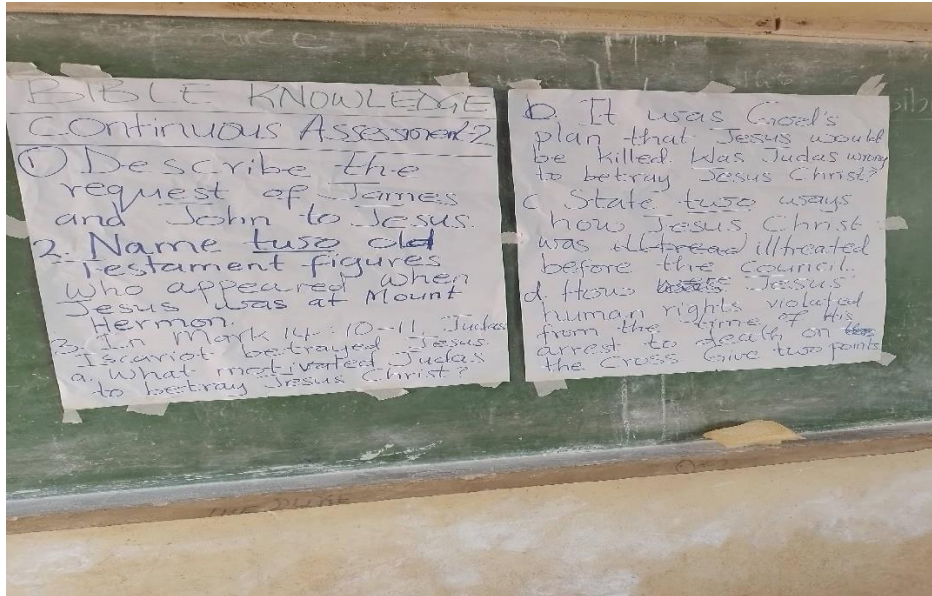 BIBLE KNOWLEDGE
Continuous Assessment 2
1 Describe the
request of James
and John to Jesus.
2. Name two old
Testament figures
who appeared when
Jesus was at Mount
Hermon.
3. In Mark 14:10-11, Judas
Iscariot betrayed Jesus.
a. What motivated Judas
to betray Jesus Christ?
b. It was God's
plan that Jesus would
be killed. Was Judas wrong
to betray Jesus Christ?
c State two ways
how Jesus Christ
was illtreated
before the council.
d. How Jesus
human rights violated
from the time of His
arrest to death on
the Cross Give two points